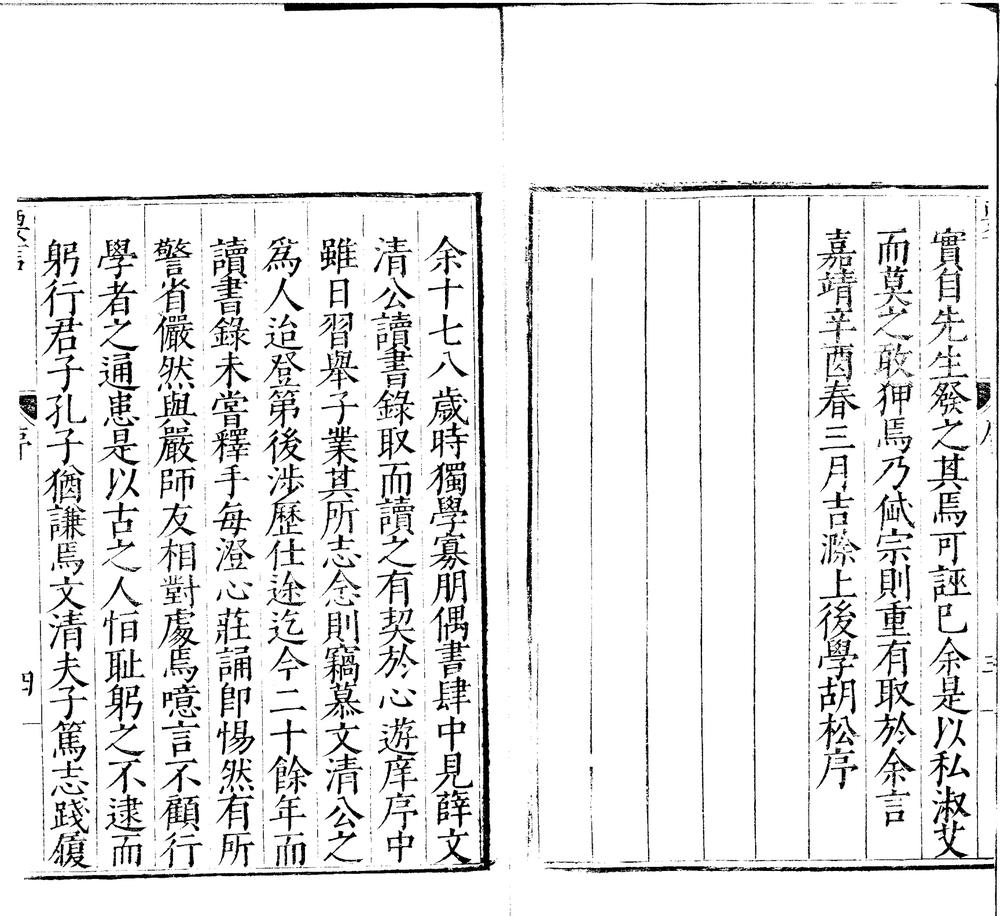 實自先生發之其焉可誣巳余是以私淑艾
而莫之敢狎焉乃侙宗則重有取於余言
嘉靖辛酉春三月吉滁上後學胡松序
余十七八歲時獨學寡朋偶書肆中見薛文
清公讀書錄取而讀之有契於心遊庠序中
雖日習舉子業其所志念則竊慕文清公之
爲人迨登第後涉歷仕途迄今二十餘年而
讀書錄未嘗釋手每澄心莊誦卽惕然有所
警省儼然與嚴師友相對處焉噫言不顧行
學者之通患是以古之人恒恥躬之不逮而
躬行君子孔子猶謙焉文清夫子篤志踐履
要言
序
四